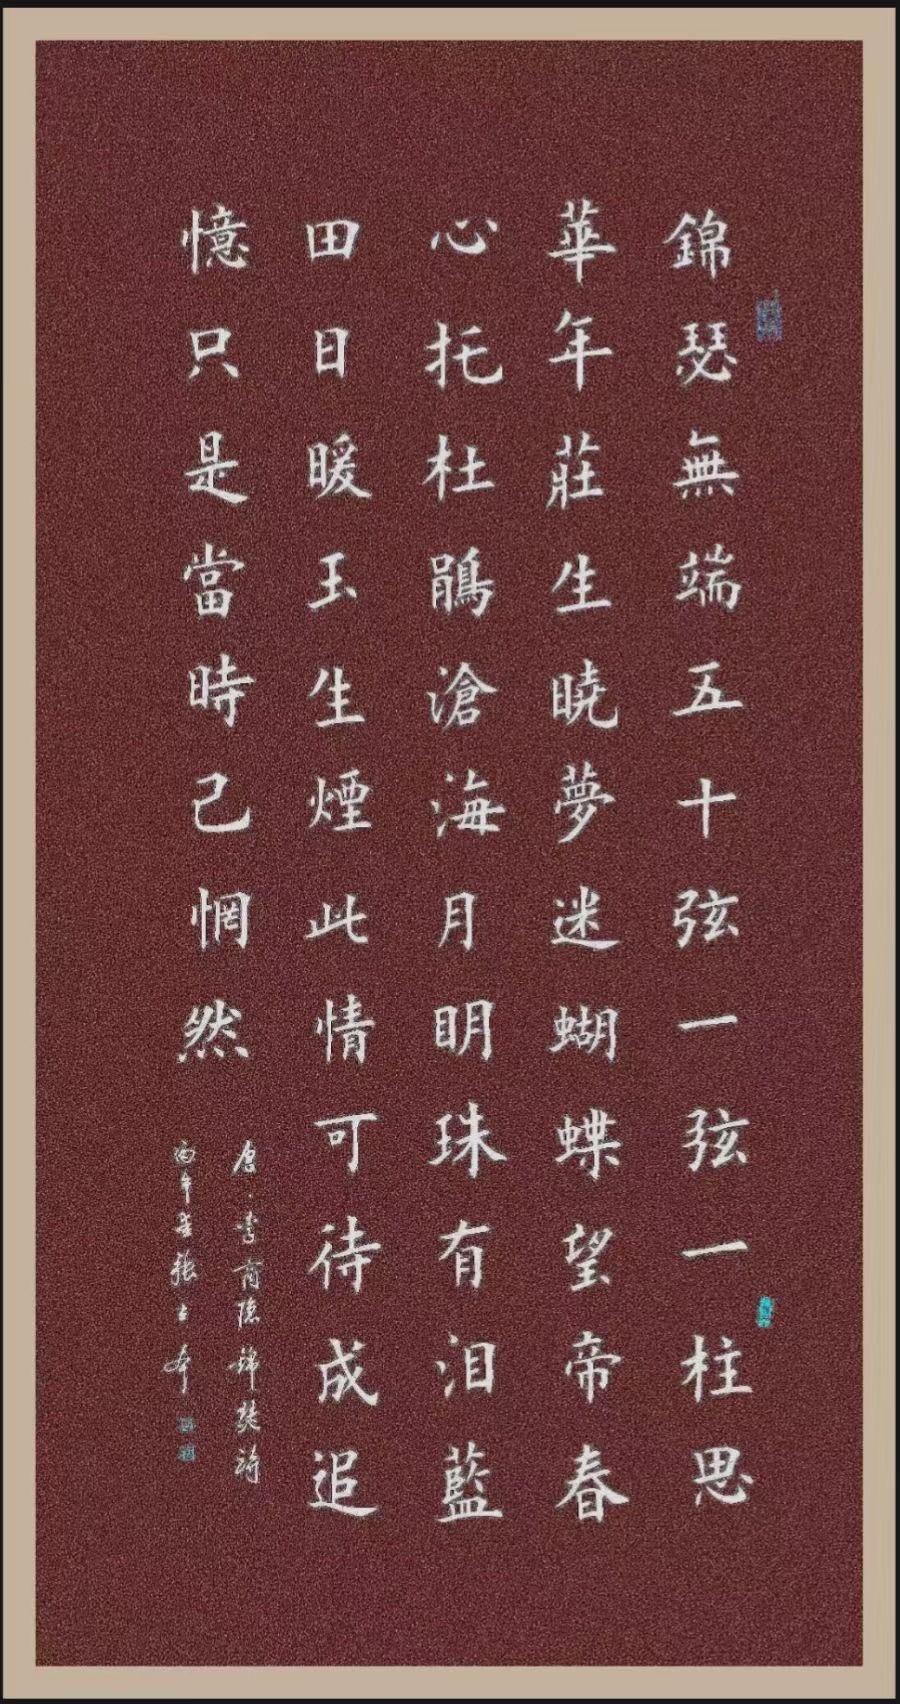 錦瑟無端五十弦一弦一柱思
華年莊生曉夢迷蝴蝶望帝春
心托杜鵑滄海月明珠有泪藍
田日暖玉生煙此情可待成追
憶只是當時己惘然
唐·李商隱錦瑟詩
丙午